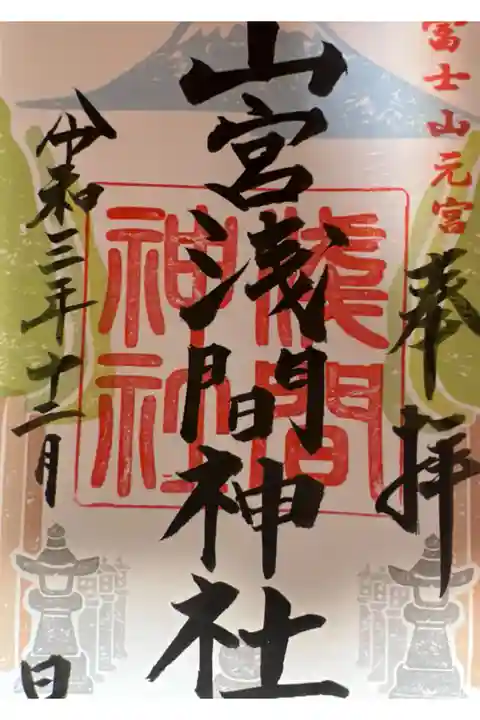 富士山元宮
奉拝
山宮浅間神社
淺間神社
令和三年十二月 日